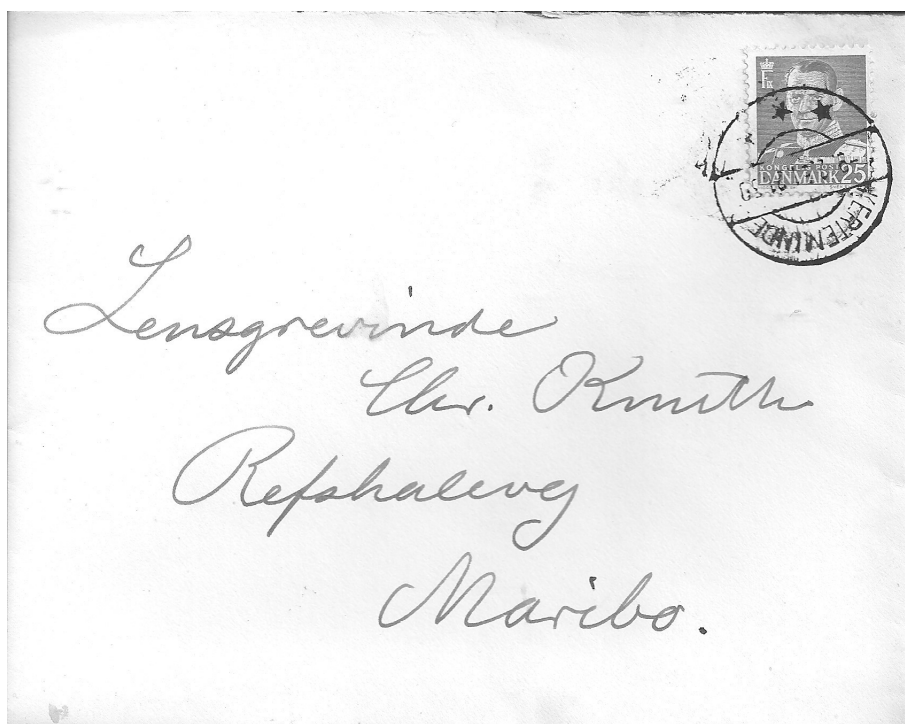 KONGEL. POST
DANMARK 25
KERTEMINDE
Lensgrevinde
Chr. Knuth
Refshalevej
Maribo.